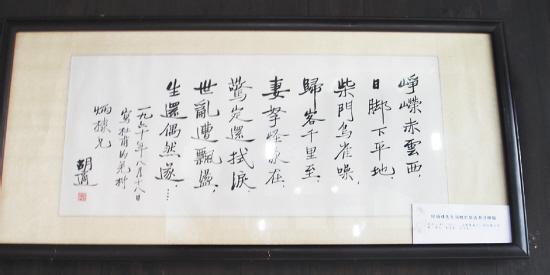 崢嶸赤雲西，
日脚下平地，
柴門鳥雀噪，
歸客千里至，
妻孥怪我在，
驚定還拭淚
世亂遭飄盪，
生還偶然遂……
一九六十年八月十八日
寫杜甫的羌村
兄
胡適